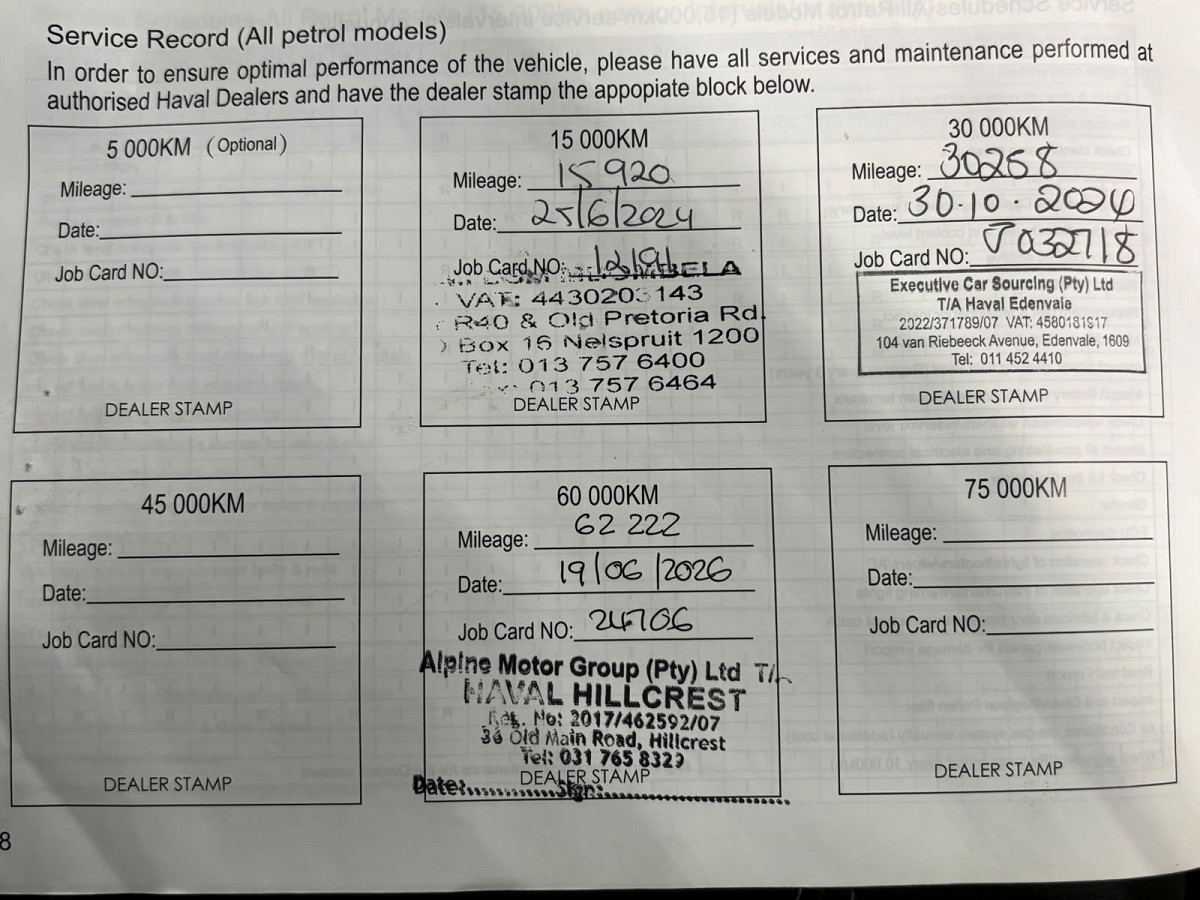 Service Record (All petrol models)
In order to ensure optimal performance of the vehicle, please have all services and maintenance performed at
authorised Haval Dealers and have the dealer stamp the appopiate block below.
5 000KM (Optional)
Mileage:
Date:
Job Card NO:
DEALER STAMP
15 000KM
Mileage: 15 920
Date: 25/6/2024
Job Card NO:
VAT: 4430203143
R40 & Old Pretoria Rd
Box 15 Nelspruit 1200
Tel: 013 757 6400
013 757 6464
DEALER STAMP
30 000KM
Mileage: 30268
Date: 30.10.2024
Job Card NO: J032718
Executive Car Sourcing (Pty) Ltd
T/A Haval Edenvale
2022/371789/07 VAT:
104 van Riebeeck Avenue, Edenvale, 1609
Tel: 011 452 4410
DEALER STAMP
45 000KM
Mileage:
Date:
Job Card NO:
DEALER STAMP
60 000KM
Mileage: 62 222
Date: 19/06/2026
Job Card NO: 24706
Alpine Motor Group (Pty) Ltd T/A
HAVAL HILLCREST
Reg. No: 2017/462592/07
36 Old Main Road, Hillcrest
Tel: 031 765
DEALER STAMP
Date: Sign:
75 000KM
Mileage:
Date:
Job Card NO:
DEALER STAMP
8